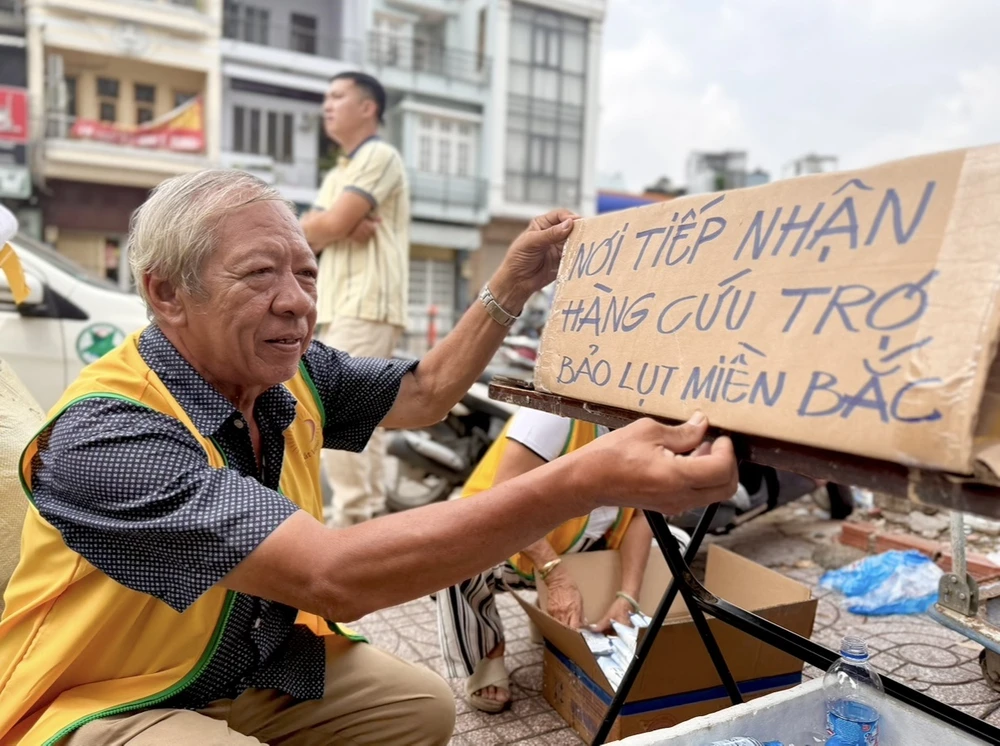 NƠI TIẾP NHẬN
HÀNG CỨU TRỢ
BẢO LỤT MIỀN BẮC